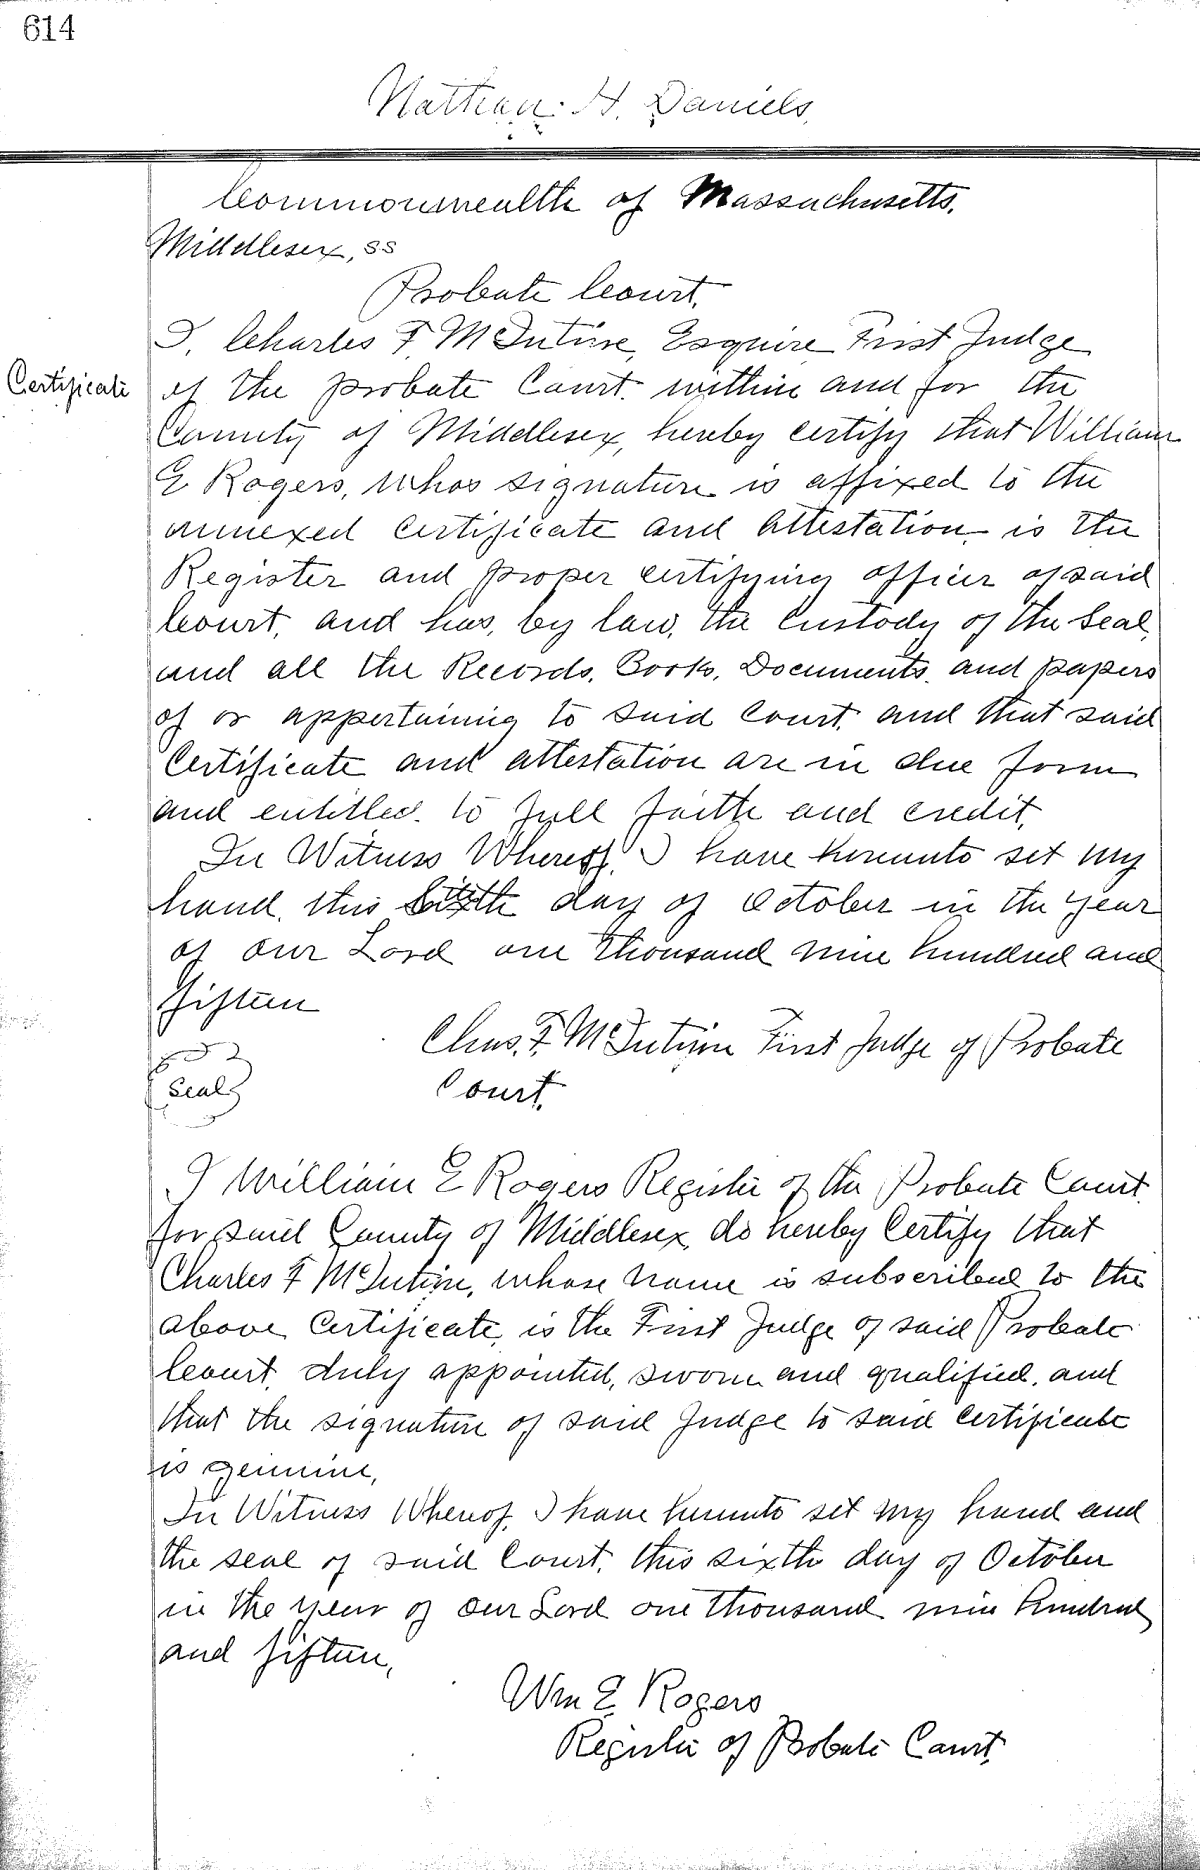 614
Nathan H. Daniels,
Commonwealth of Massachusetts.
Middlesex, ss
Probate Court.
I, Charles F. McIntire, Esquire First Judge
Certificate
of the probate Court within and for the
County of Middlesex, hereby certify that William
E Rogers, whos signature is affixed to the
annexed certificate and attestation is the
Register and proper certifying officer of said
Court, and has, by law, the custody of the Seal,
and all the Records, Books, Documents, and papers
of or appertaining to said Court, and that said
Certificate and attestation are in due form
and entitled to full faith and credit.
In Witness Whereof, I have hereunto set my
hand, this sixth day of October in the year
of our Lord one thousand nine hundred and
fifteen
Chas. F. McIntire First Judge of Probate
Seal
Court.
I William E Rogers Register of the Probate Court
for said County of Middlesex, do hereby Certify that
Charles F McIntire, whose name is subscribed to the
above Certificate, is the First Judge of said Probate
Court, duly appointed, sworn and qualified, and
that the signature of said Judge to said certificate
is genuine,
In Witness Whereof, I have hereunto set my hand and
the seal of said Court, this sixth day of October
in the year of our Lord one thousand nine hundred
and fifteen,
Wm E Rogers
Register of Probate Court.